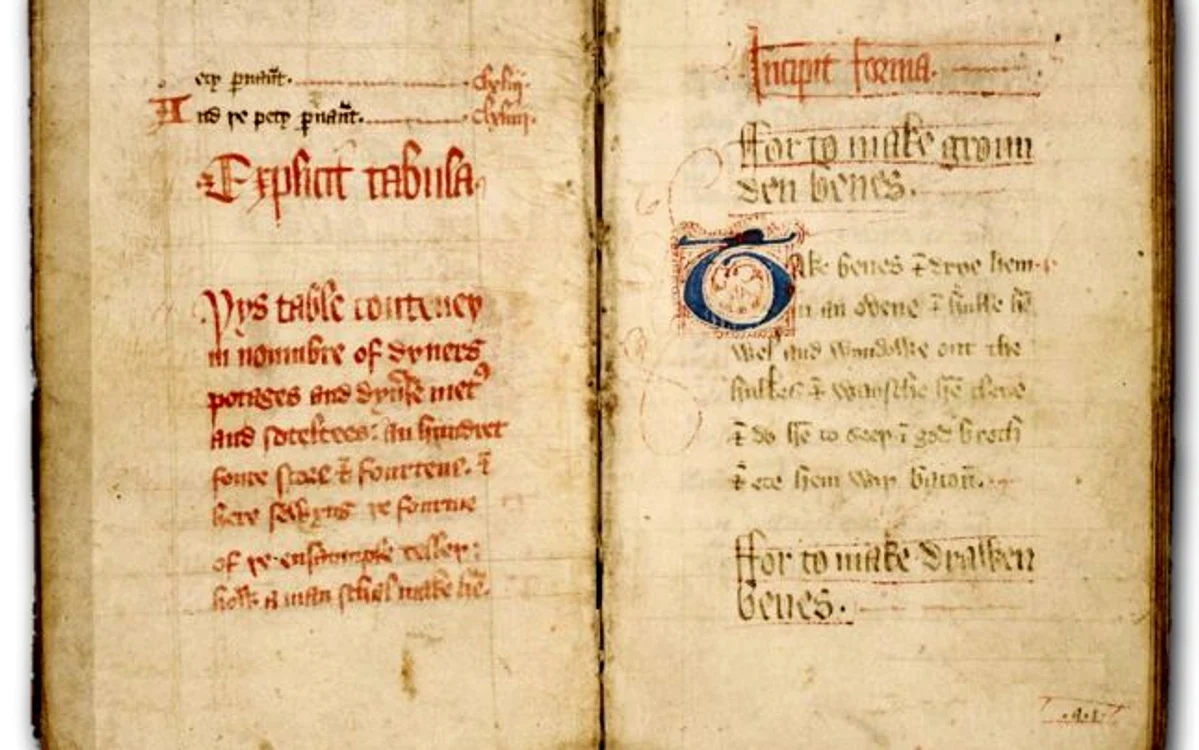 ery puaũt. clxliij.
And ye pety puaũt. clxliiij.
Explicit tabula
Þys table conteney
in noumbre of dyners
potages and dyuerse met
and soteltees: an hundret
foure score & fourtene. &
here folwyng ye fourme
of ye ensaumple telley:
how a man schal make hē.
Incipit forma.
ffor to make groun
den benes.
Take benes & drye hem
in an ovene & hulle hē
wel and wyndowe out the
hulkes & waysche hē clene
& do hē to seep ī god broth
& ete hem wiþ bacoū.
ffor to make drawen
benes.